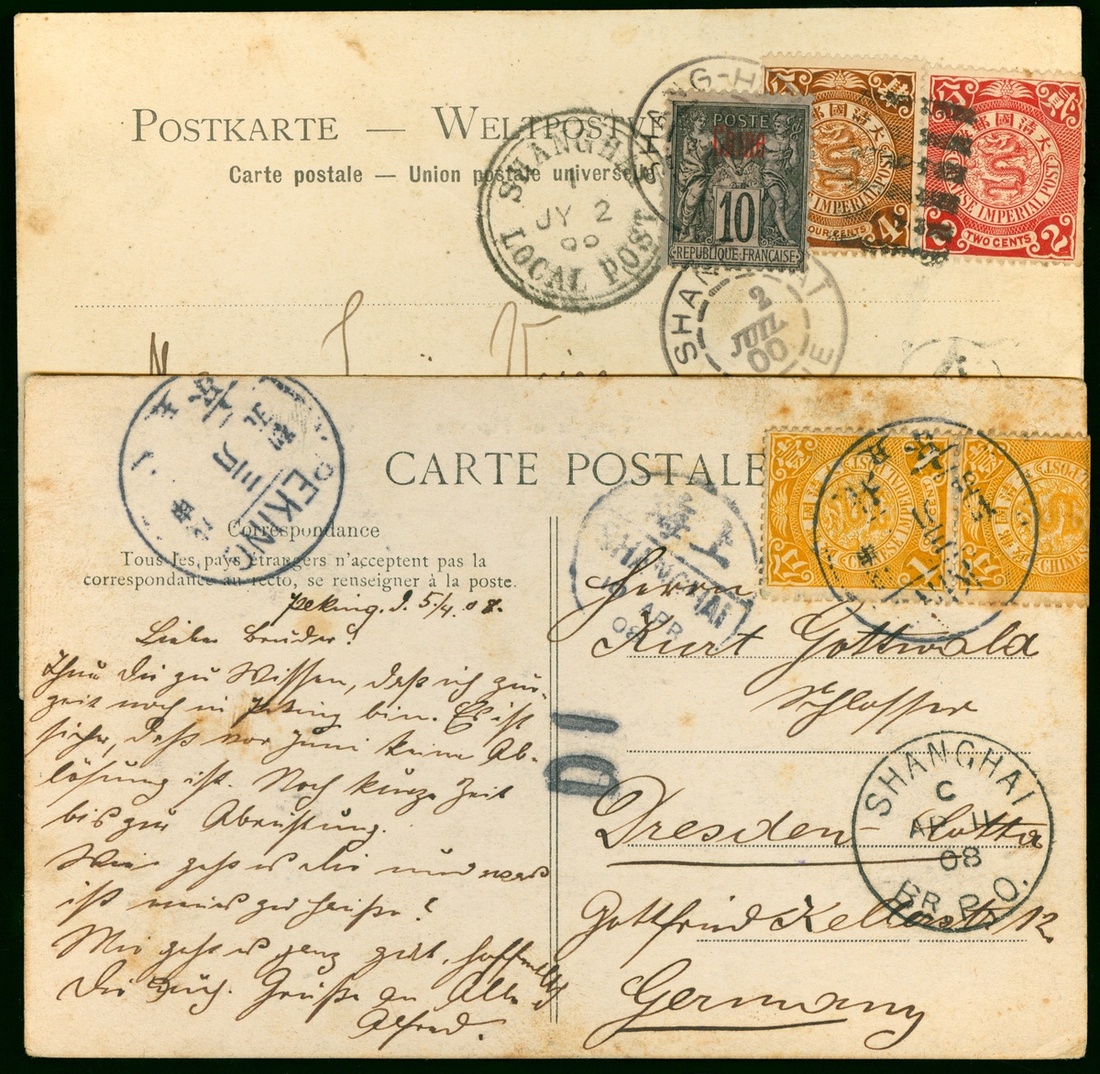 POSTKARTE — WELTPOSTVE
Carte postale – Union postale universelle
SHANGHAI
1
JY 2
00
LOCAL POST
SHANG-H
POSTE
Chine
10
REPUBLIQUE FRANÇAISE
大清國郵
CHINESE IMPERIAL POST
FOUR CENTS 4
大清國郵
CHINESE IMPERIAL POST
2 TWO CENTS 2
SHANG HAI
2
JUIL
00
NE
PEKING
三月
CARTE POSTALE
Correspondance
Tous les pays étrangers n'acceptent pas la
correspondance au recto, se renseigner à la poste.
上海
SHANGHAI
APR
08
Peking. d. 5/4. 08.
Lieber Bruder!
Thue Dir zu Wissen, daß ich zur-
zeit noch in Peking bin. Es ist
sicher, daß vor Juni keine Ab-
lösung ist. Noch kurze Zeit
bis zur Abrüstung.
Wie geht es Dir und was
ist
Mir geht es ganz gut, hoffentlich
Dir auch. Grüße an Alle
Alfred.
Herrn
Kurt Gottwald
Schlosser
Dresden - Cotta
Gottfried Kellerstr. 12.
Germany
DI
SHANGHAI
C
AP 11
08
BR. P.O.